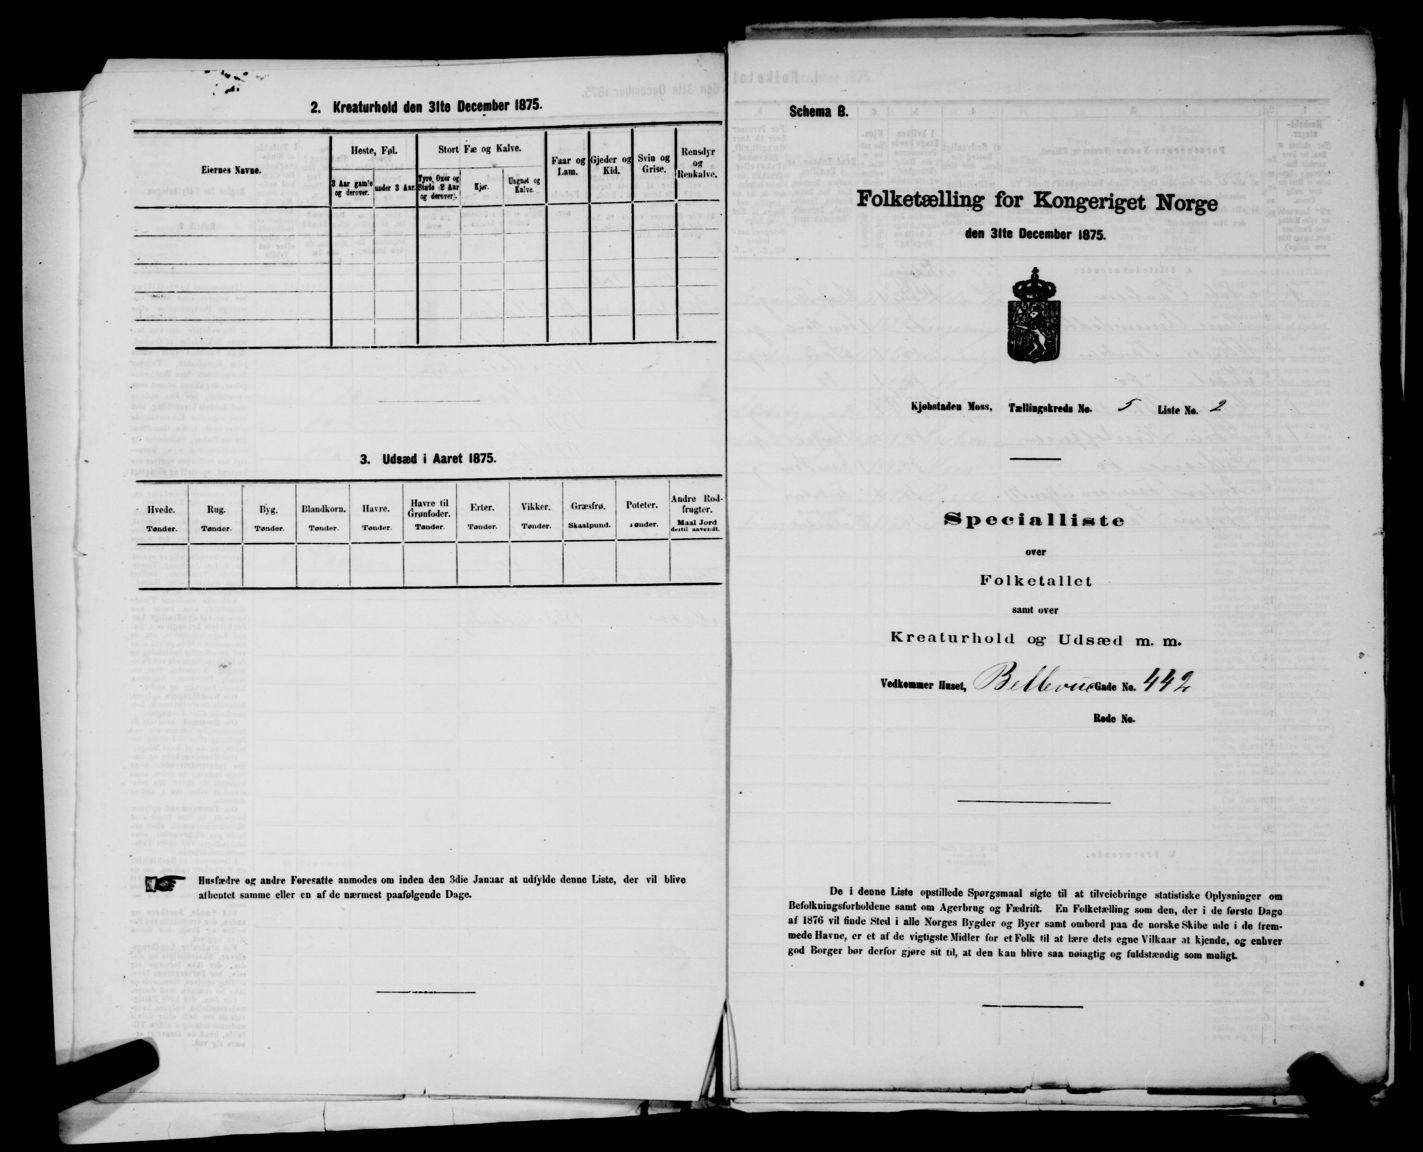 2. Kreaturhold den 31te December 1875.
Eiernes Navne.
Heste, Føl.
Stort Fæ og Kalve.
Faar og Lam.
Gjeder og Kid.
Svin og Grise.
Rensdyr og Renkalve.
3 Aar gamle og derover.
under 3 Aar.
Tyre, Oxer og Stude (2 Aar og derover).
Kjør.
Ungnet og Kalve.
3. Udsæd i Aaret 1875.
Hvede. Rug. Byg. Blandkorn. Havre. Havre til Grønfoder. Erter. Vikker. Græsfrø. Poteter. Andre Rodfrugter.
Tønder. Tønder. Tønder. Tønder. Tønder. Tønder. Tønder. Tønder. Skaalpund. Tønder. Maal Jord dertil anvendt.
Husfædre og andre Foresatte anmodes om inden den 3die Januar at udfylde denne Liste, der vil blive
afhentet samme eller en af de nærmest paafølgende Dage.
Schema B.
Folketælling for Kongeriget Norge
den 31te December 1875.
Kjøbstaden Moss, Tællingskreds No. 5 Liste No. 2
Specialliste
over
Folketallet
samt over
Kreaturhold og Udsæd m. m.
Vedkommer Huset, Bellevue Gade No. 442
Rode No.
De i denne Liste opstillede Spørgsmaal sigte til at tilveiebringe statistiske Oplysninger om
Befolkningsforholdene samt om Agerbrug og Fædrift. En Folketælling som den, der i de første Dage
af 1876 vil finde Sted i alle Norges Bygder og Byer samt ombord paa de norske Skibe ude i de frem-
mede Havne, er et af de vigtigste Midler for et Folk til at lære dets egne Vilkaar at kjende, og enhver
god Borger bør derfor gjøre sit til, at den kan blive saa nøiagtig og fuldstændig som muligt.